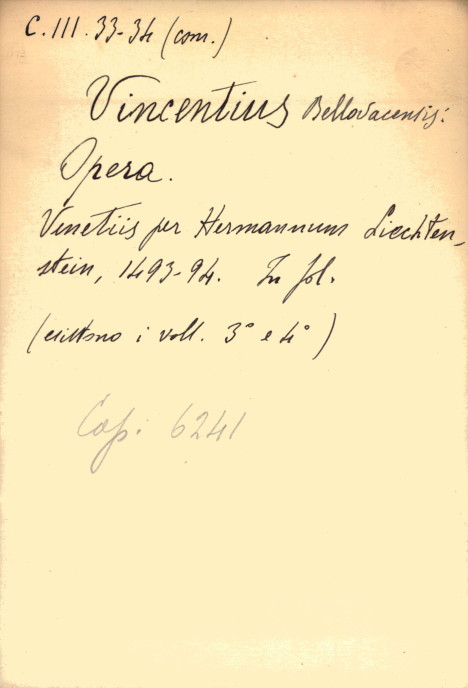 C. III. 33-34 (com.)
Vincentius Bellovacensis:
Opera.
Venetiis per Hermannum Liechten-
stein, 1493-94. In fol.
(esistono i voll. 3° e 4°)
Cop. 6241